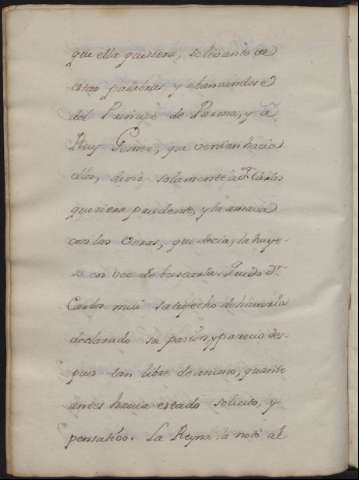 que ella quisiera, se levantò en
estas palabras y abanzandose
del Principe de Parma, y à
Ruy Gomez, que venian hàcia
ellos, dixo solamente à Dn. Carlos
que viera prudente, y la amaria
con las veras, que decia, la huye-
se en vez de buscarla. Quedò Dn.
Carlos mui satisfecho de haverla
declarado su pasion, y pareciò des-
pues tan libre de animo, quanto
antes havia estado solicito, y
pensativo. La Reyna lo notò al